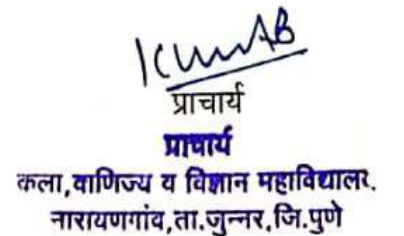 प्राचार्य
प्राचार्य
कला,वाणिज्य व विज्ञान महाविद्यालय.
नारायणगांव,ता.जुन्नर,जि.पुणे